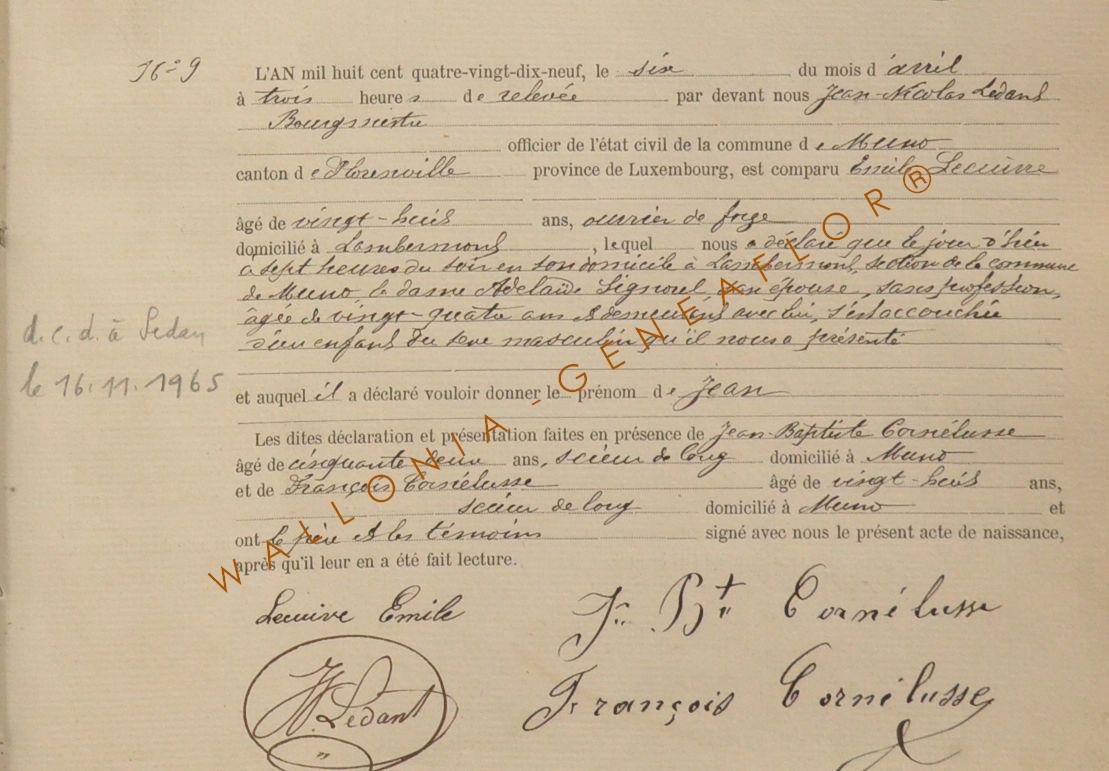 N° 9
L'AN mil huit cent quatre-vingt-dix-neuf, le six du mois d'avril
à trois heures de relevée par devant nous Jean-Nicolas Ledant
Bourgmestre
officier de l'état civil de la commune de Muno
canton de Florenville province de Luxembourg, est comparu Emile Lecuivre
âgé de vingt-huit ans, ouvrier de forge
domicilié à Lambermont, lequel nous a déclaré que le jour d'hier
à sept heures du soir en son domicile à Lambermont, section de la commune
de Muno, la dame Adelaïde Lignorel, son épouse, sans profession,
âgée de vingt-quatre ans et demeurant avec lui, s'est accouchée
d'un enfant du sexe masculin qu'il nous a présenté
et auquel il a déclaré vouloir donner le prénom de Jean
Les dites déclaration et présentation faites en présence de Jean-Baptiste Cornélusse
âgé de cinquante deux ans, scieur de long domicilié à Muno
et de François Cornélusse âgé de vingt-huit ans,
scieur de long domicilié à Muno et
ont le père et les témoins signé avec nous le présent acte de naissance,
après qu'il leur en a été fait lecture.
d.c.d. à Sedan
le 16.11.1965
Lecuivre Emile
J. Bt Cornélusse
Ledant
François Cornélusse
WALLONIA-GENEAFLOR®